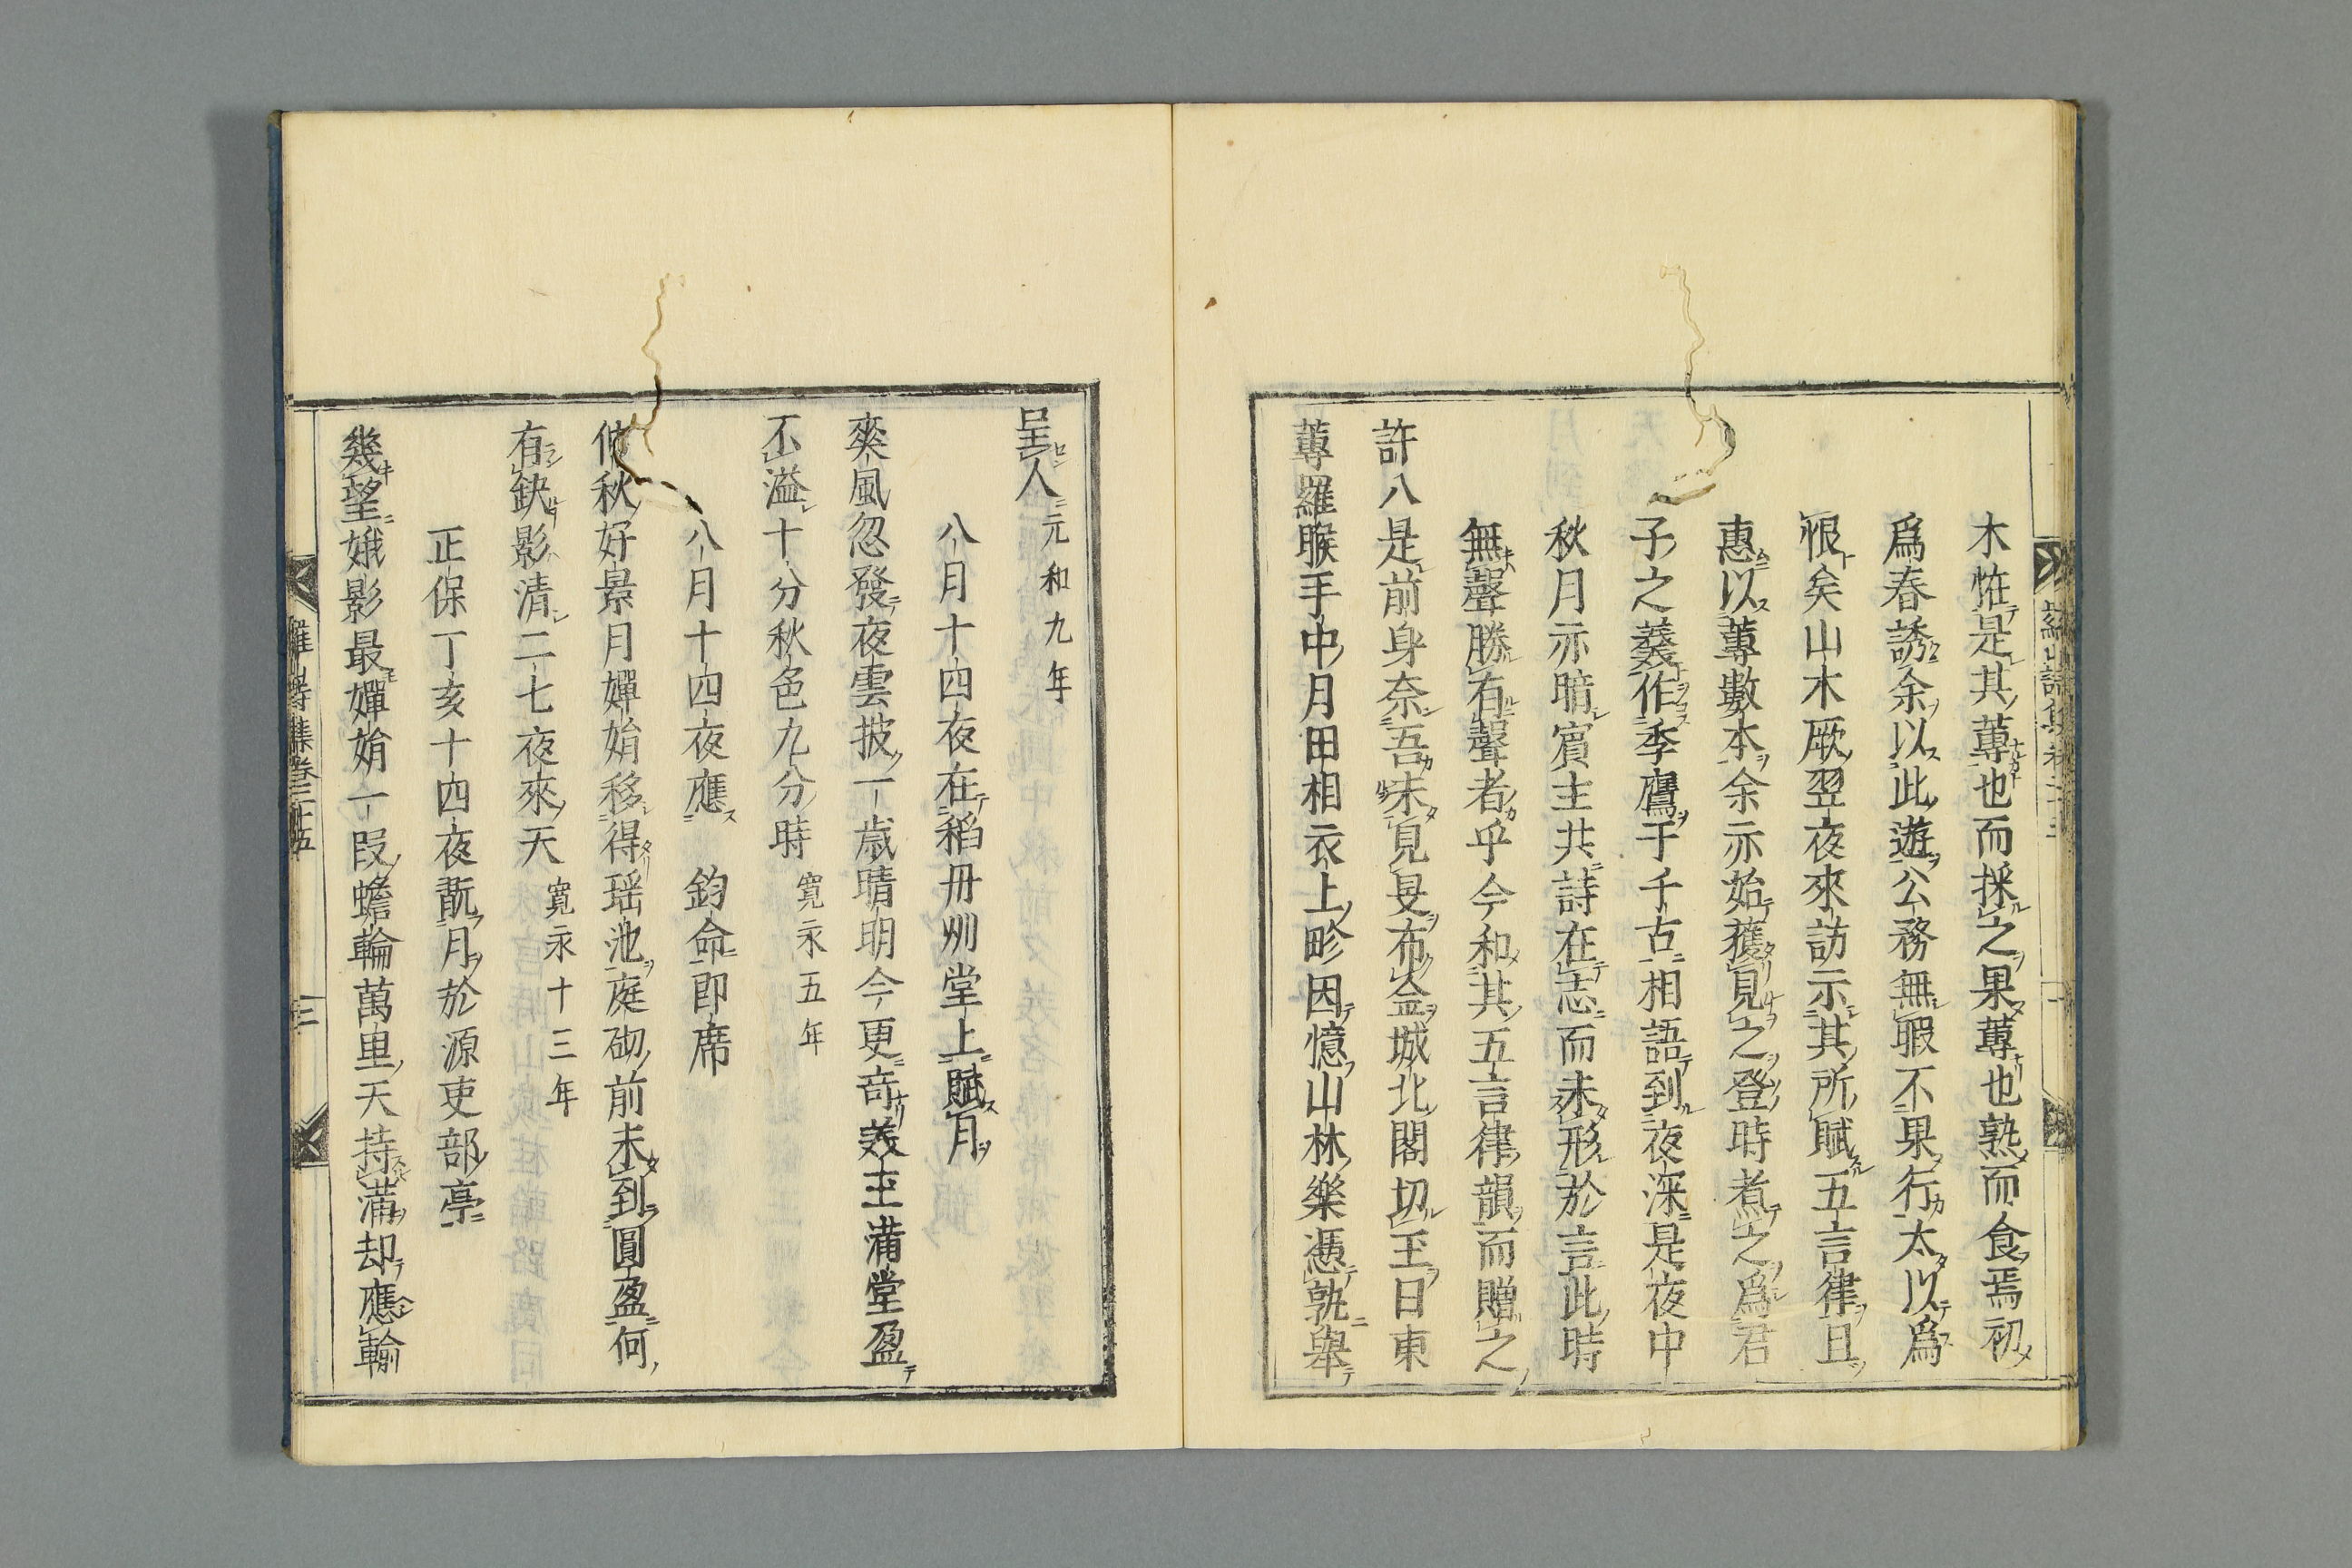 木惟是其蓴也而採之果蓴也熟而食焉初
爲春誘余以此遊公務無暇不果行太以爲
恨矣山木厥翌夜來訪示其所賦五言律且
惠以蓴數本余亦始獲見之登時煮之爲君
子之羹作季鷹于千古相語到夜深是夜中
秋月亦暗賓主共詩在志而未形於言此時
無聲勝有聲者乎今和其五言律韻而贈之
許八是前身奈吾未見旻布金城北閣切玉日東
蓴羅睺手中月田相衣上畛因憶山林樂憑孰舉
呈人 元和九年
八月十四夜在稻丹州堂上賦月
爽風忽發夜雲披一歳晴明今更奇美主滿堂盈
不溢十分秋色九分時 寬永五年
八月十四夜應 鈞命即席
秋好景月嬋娟移得瑶池庭砌前未到圓盈何
有缺影清二七夜來天 寬永十三年
正保丁亥十四夜翫月於源吏部亭
幾望娥影最嬋娟一段蟾輪萬里天持滿却應輸
羅山詩集卷三十五 三